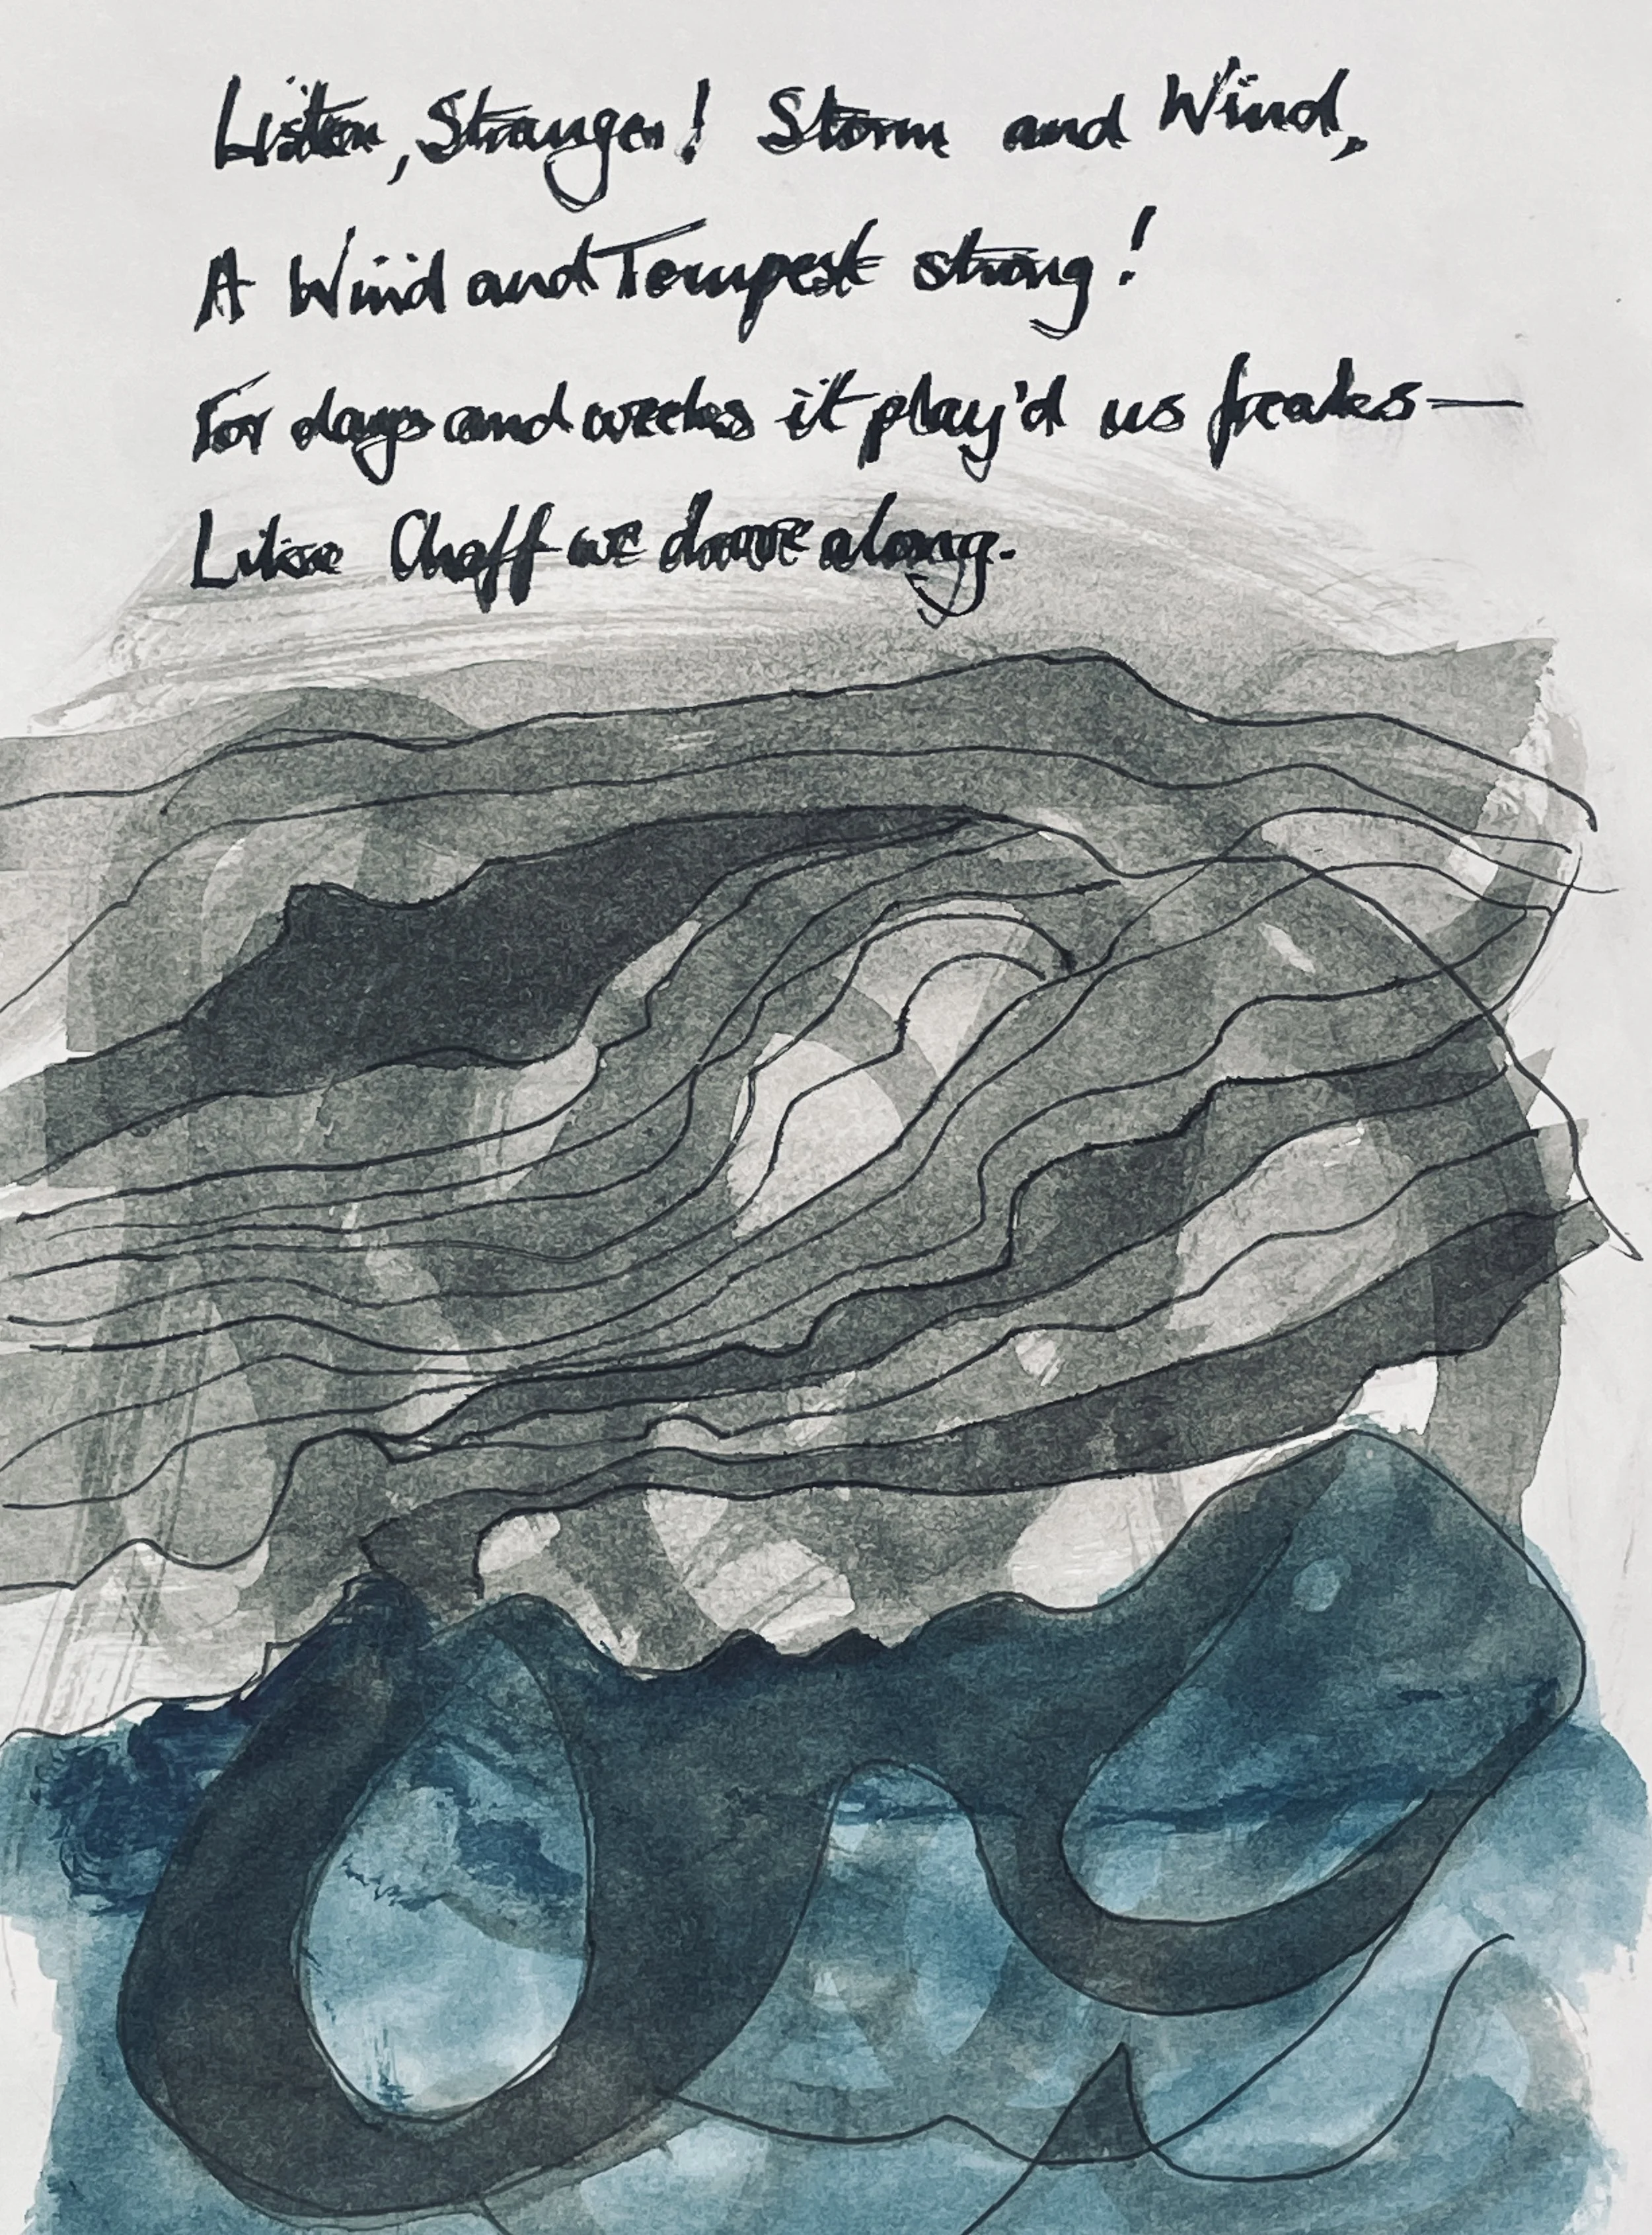 Listen, Stranger! Storm and Wind,
A Wind and Tempest strong!
For days and weeks it play'd us freaks—
Like Chaff we drove along.